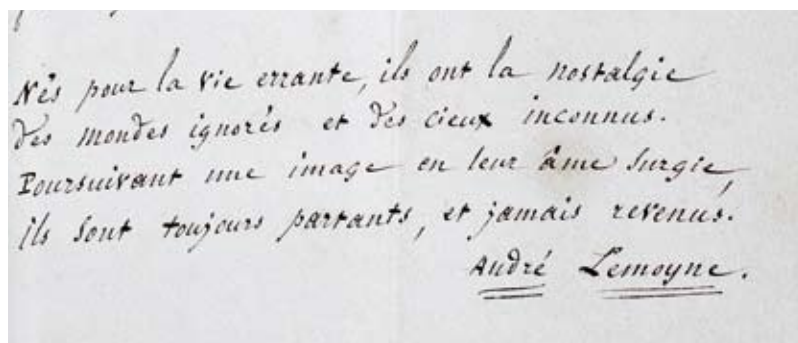 Nés pour la vie errante, ils ont la nostalgie
des mondes ignorés et des cieux inconnus.
Poursuivant une image en leur âme surgie,
ils sont toujours partants, et jamais revenus.
André Lemoyne.